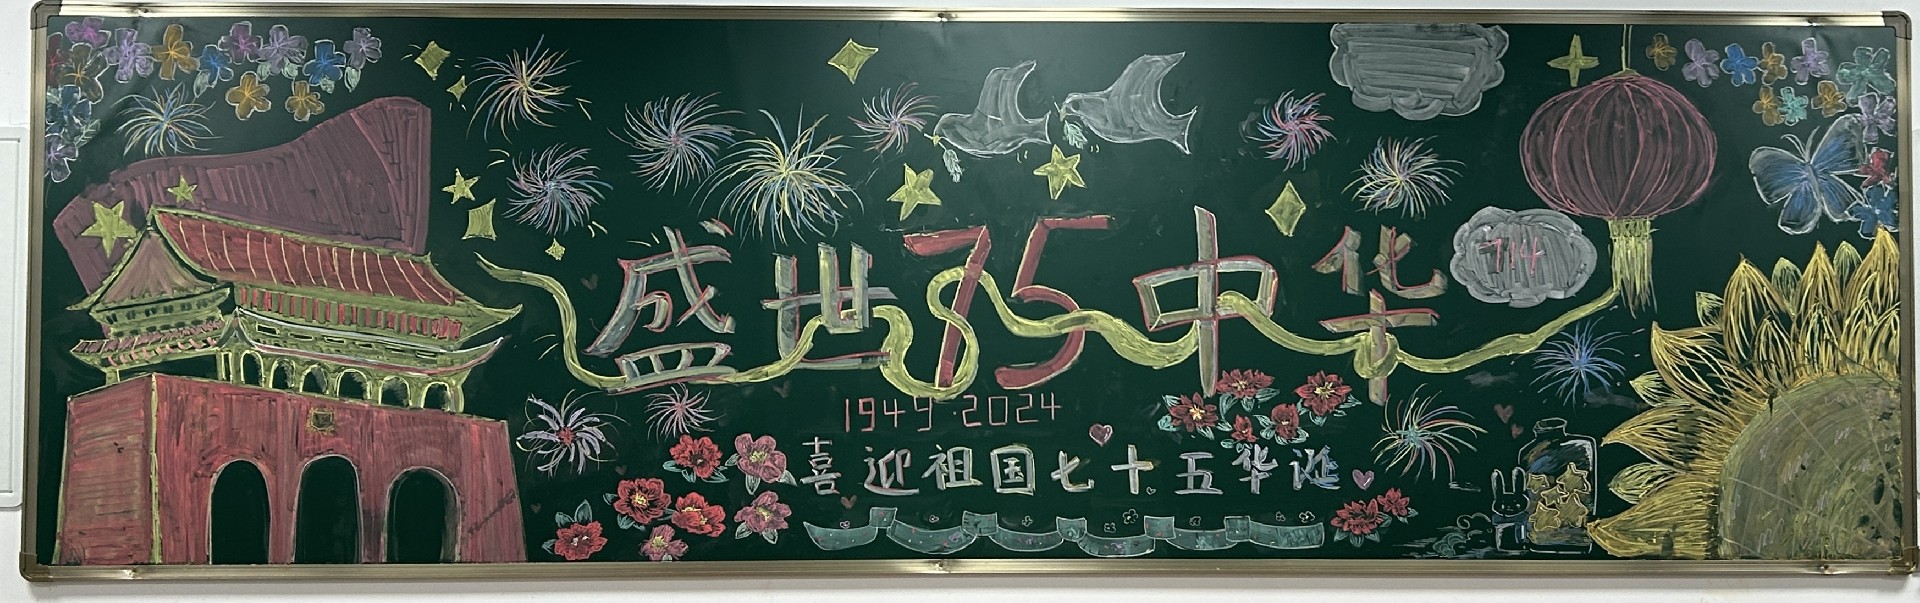 盛世75中华
714
1949·2024
喜迎祖国七十五华诞